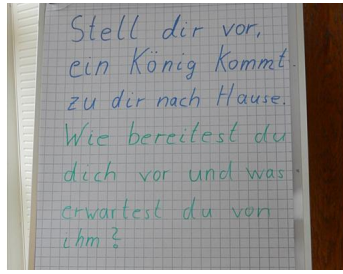 Stell dir vor,
ein König kommt
zu dir nach Hause.
Wie bereitest du
dich vor und was
erwartest du von
ihm?